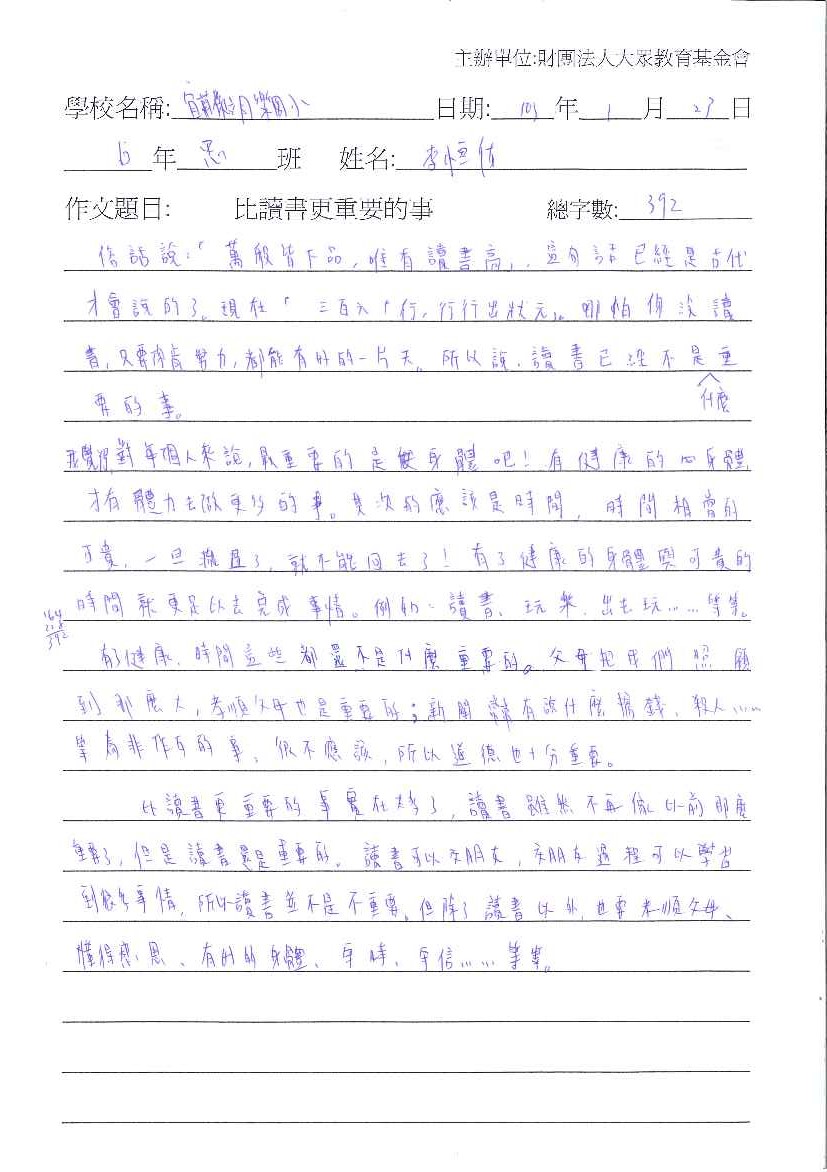 主辦單位:財團法人大眾教育基金會
學校名稱: 宜蘭縣月樂國小 日期: 103 年 1 月 23 日
6 年 思 班 姓名: 李恒佑
作文題目: 比讀書更重要的事 總字數: 392
俗話說:「萬般皆下品,唯有讀書高」,這句話已經是古代
才會說的了。現在「三百六「行,行行出狀元」。哪怕你沒讀
書,只要你肯努力,都能有好的一片天。所以說,讀書已經不是重
什麼
要的事。
我覺得對每個人來說,最重要的是身體吧!有健康的身體
才有體力去做更多的事。其次的應該是時間,時間相當的
可貴,一旦流過了,就不能回去了!有了健康的身體與可貴的
時間就更足以去完成事情。例如:讀書、玩樂、出去玩......等等。
164
228
392
有了健康、時間這些都還不是什麼重要的。父母把我們照顧
到那麼大,孝順父母也是重要的;新聞常有說什麼搶錢、殺人......
等為非作歹的事、很不應該,所以道德也十分重要。
比讀書更重要的事實在太多了,讀書雖然不再像以前那麼
重要了,但是讀書還是重要的。讀書可以交朋友,交朋友過程可以學習
到很多事情,所以讀書並不是不重要。但除了讀書以外,也要孝順父母、
懂得感恩、有好的身體、守時、守信......等等。